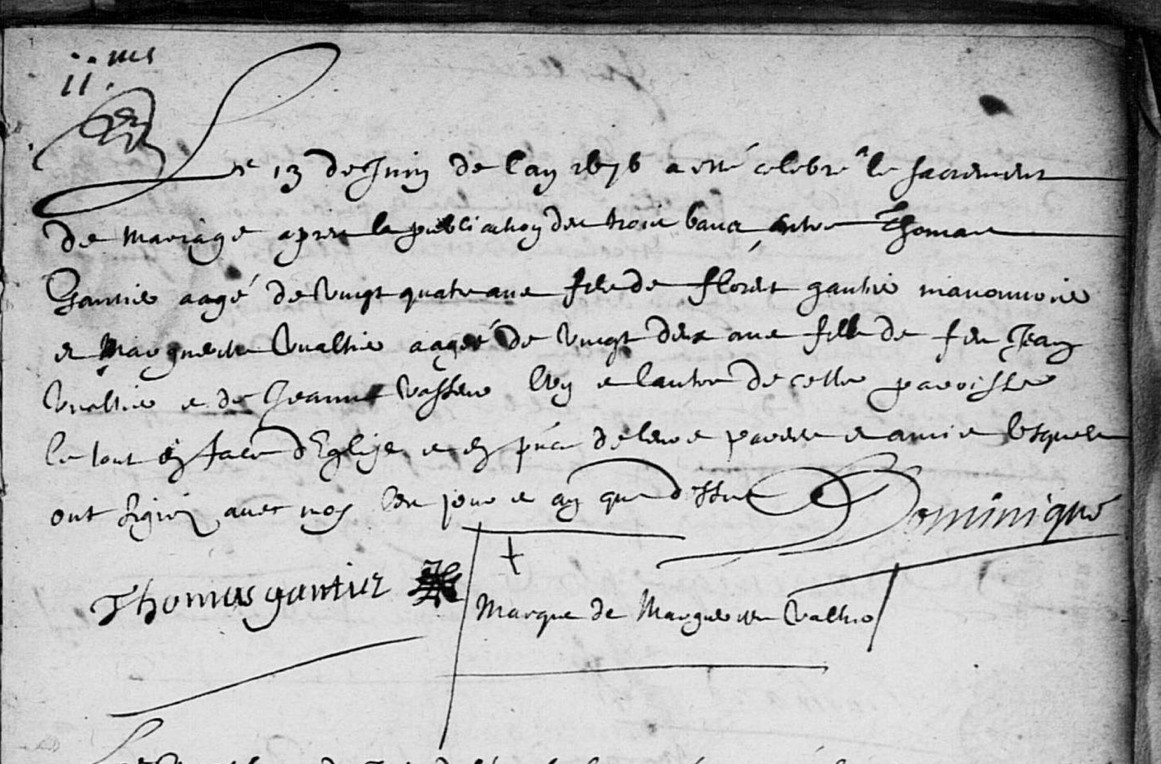 11. mes
Le 13 de Juin de l'an 1676 a esté celebré le sacrement
de mariage apres la publication des trois bancs entre Thomas
Gautier aagé de vingt quatre ans fils de Florent gautier manouvrier
et Marguerite Vualtier aagée de vingt deux ans fille de feu Jean
Vualtier et de Jeanne Vasseur l'un et l'autre de cette paroisse
le tout en face d'Eglise et en pñce de leurs parens et amis lesquels
ont signéz avec nos les jour et an que dessus Dominique
Thomas gautier
Marque de Marguerite Valtier